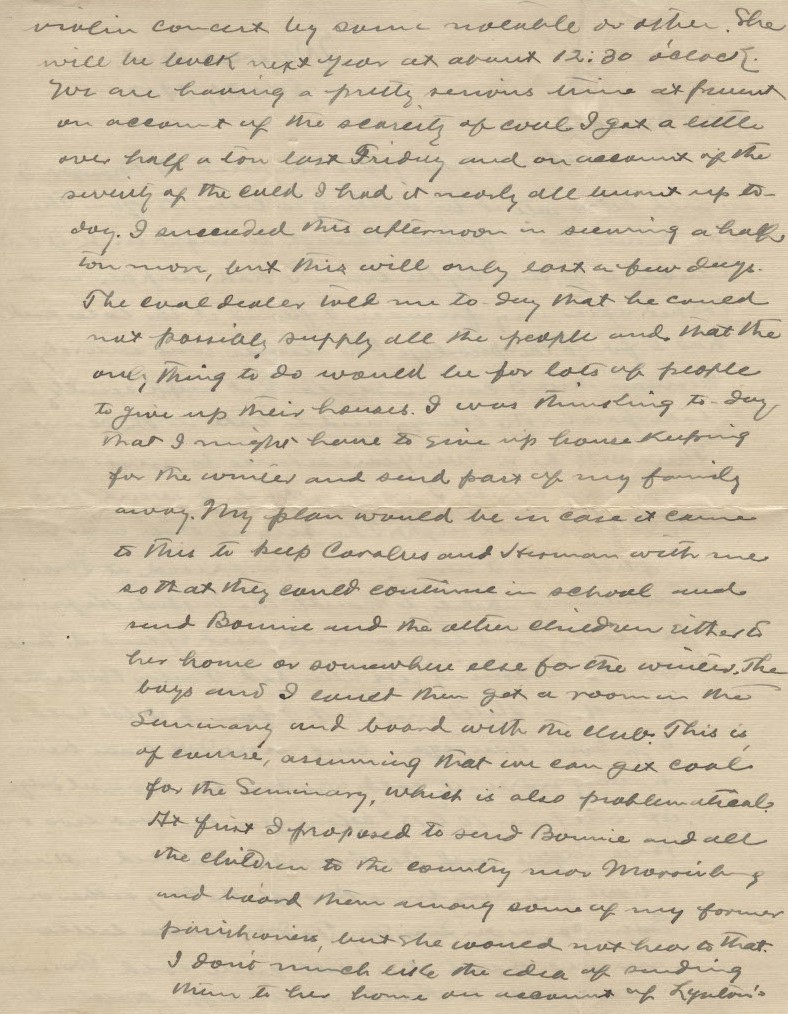 violin concert by some notable or other. She
will be back next year at about 12:30 o'clock.
We are having a pretty serious time at present
on account of the scarcity of coal I got a little
over half a ton last Friday and on account of the
severity of the cold I had it nearly all burnt up to-
day. I succeeded this afternoon in securing a half
ton more, but this will only last a few days.
The coal dealer told me to-day that he could
not possibly supply all the people and that the
only thing to do would be for lots of people
to give up their houses. I was thinking to-day
that I might have to give up house keeping
for the winter and send part of my family
away. My plan would be in case it came
to this to keep and Herman with me
so that they could continue in school and
send Bonnie and the other children either to
her home or somewhere else for the winter. The
boys and I could then get a room in the
Seminary and board with the club. This is,
of course, assuming that we can get coal
for the Seminary, which is also problematical.
At first I proposed to send Bonnie and all
the children to the country near
and board them among some of my former
parishioners, but she would not hear to that.
I don't much like the idea of sending
them to her home on account of Lynton's